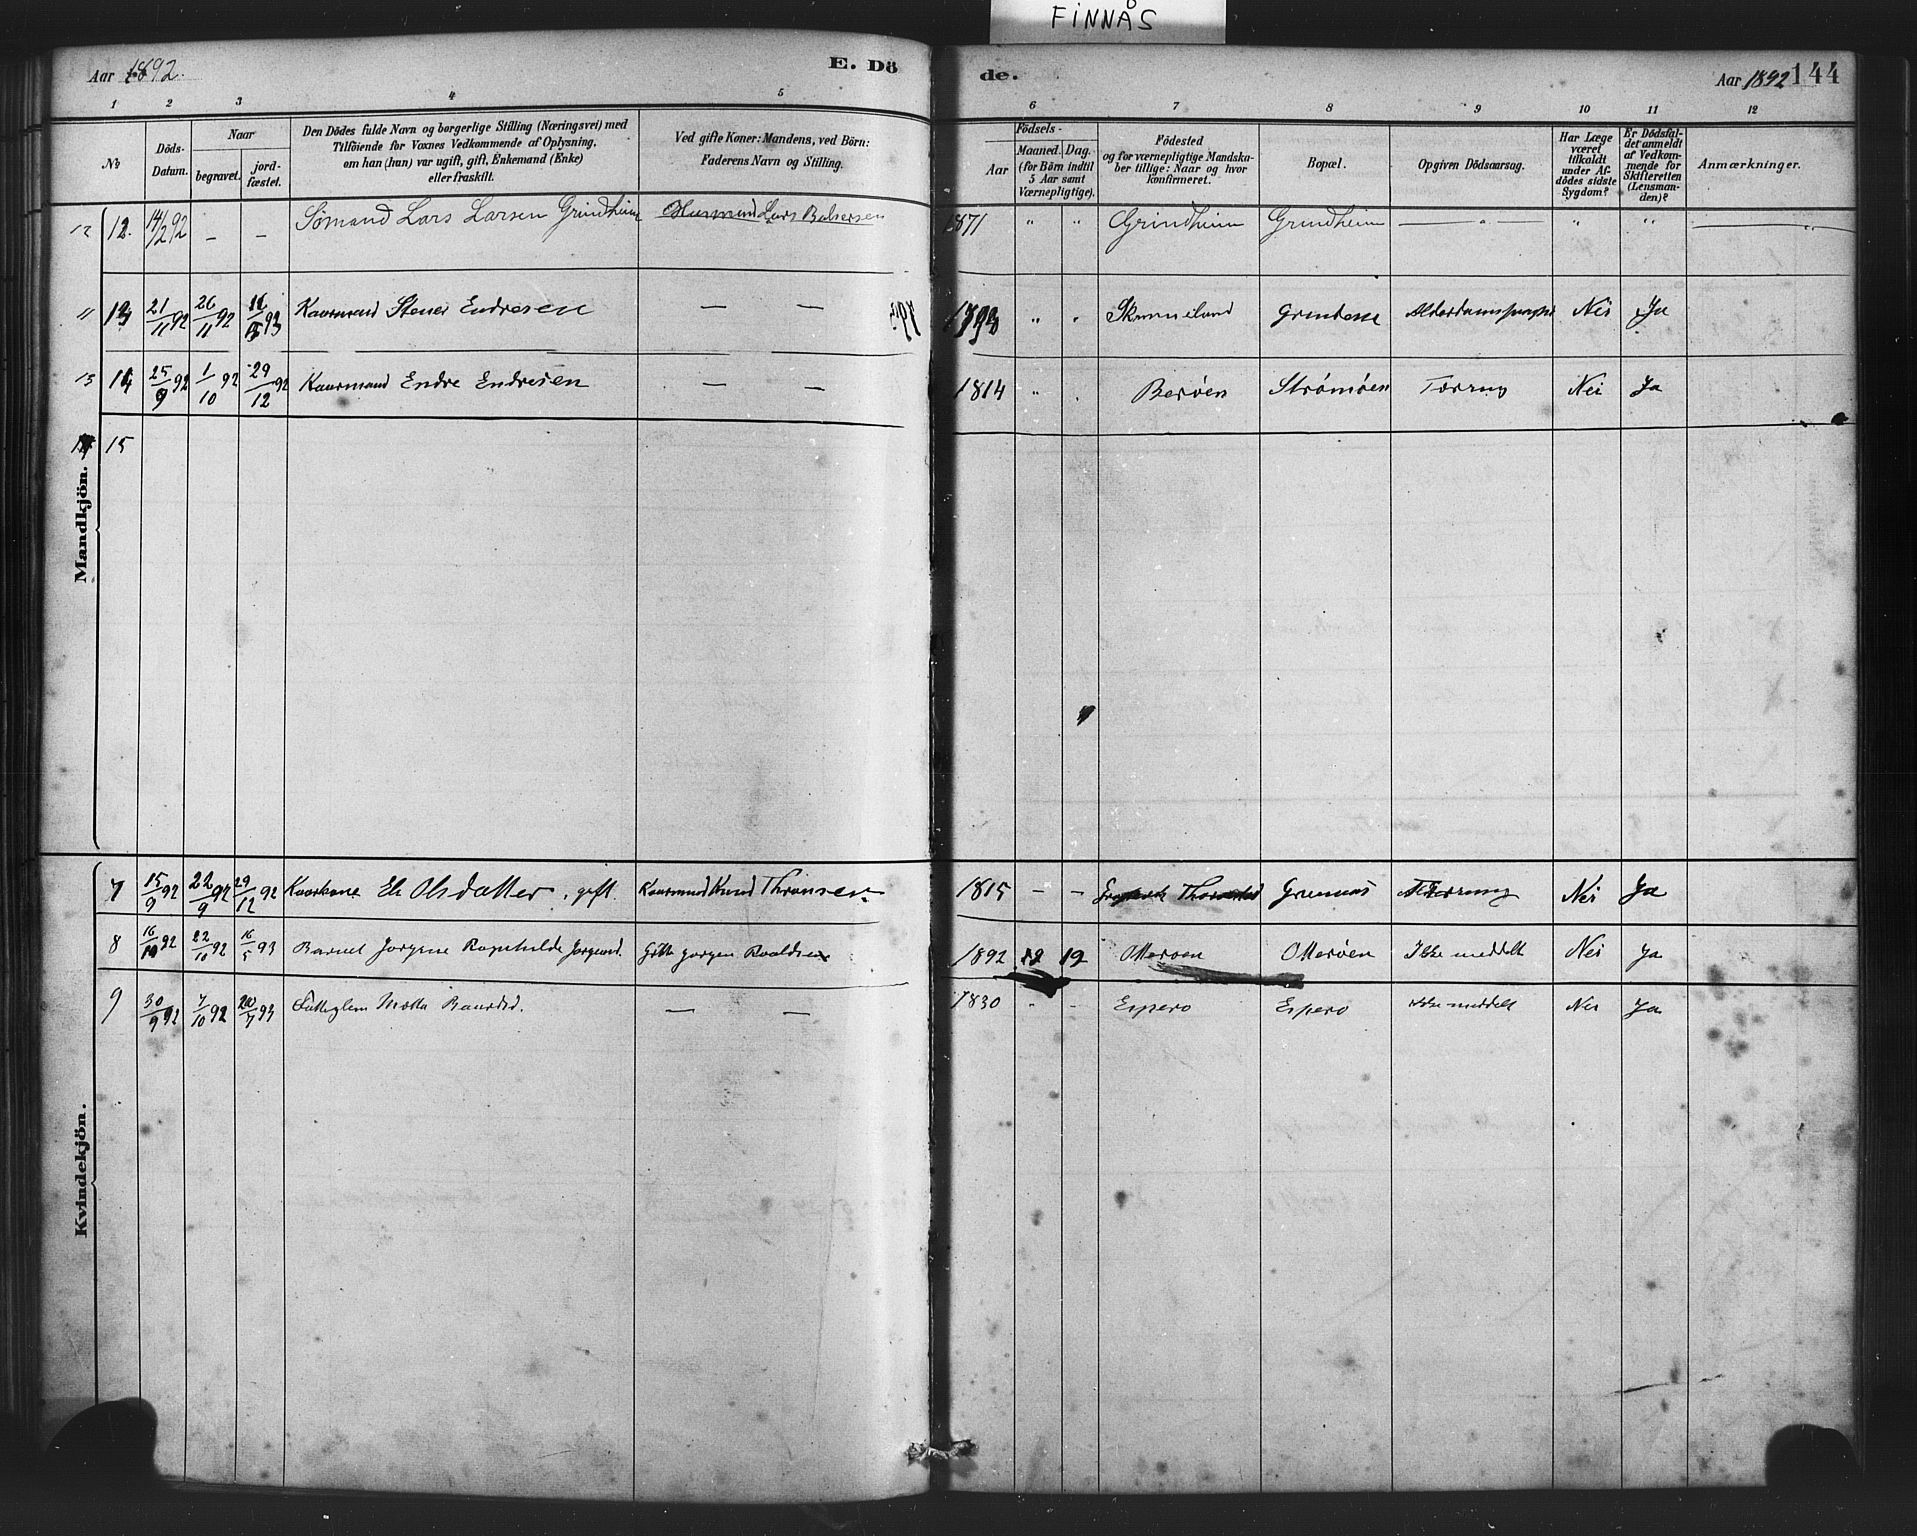 FINNÅS
Aar 1892.
E. Dö
de.
Aar 1892 144
1 2 3 4 5
6 7 8 9 10 11 12
No
Döds-
Datum.
Naar
begravet.
jord-
fæstet.
Den Dödes fulde Navn og borgerlige Stilling (Næringsvei) med
Tilföiende for Voxnes Vedkommende af Oplysning,
om han (hun) var ugift, gift, Enkemand (Enke)
eller fraskilt.
Ved gifte Koner: Mandens, ved Börn:
Faderens Navn og Stilling.
Födsels-
Aar
Maaned. Dag.
(for Börn indtil
5 Aar samt
Værnepligtige).
Födested
og for værnepligtige Mandska-
ber tillige: Naar og hvor
konfirmeret.
Bopæl.
Opgiven Dödsaarsag.
Har Læge
været
tilkaldt
under Af-
dödes sidste
Sygdom?
Er Dödsfal-
det anmeldt
af Vedkom-
mende for
Skifteretten
(Lensman-
den)?
Anmærkninger.
Mandkjön.
12 12. 14/2 92 – – Sömand Lars Larsen Grindheim Husmand Lars 1871 " " Grindheim Grindheim — " " " — "
11 13 21/11 92 26/11 92 93 Kaarmand Stener Endresen — — " " Nei Ja
13 14 25/9 92 1/10 92 29/12 92 Kaarmand Endre Endresen — — 1814 " Beröen Strömöen Tæring Nei Ja
15
Kvindekjön.
7 15/9 92 22/9 92 29/12 92 Kaarkone Eli Olsdatter, gift. Kaarmand Knud Thronsen. 1815 – – Tæring Nei Ja
8 16/10 92 22/10 92 16/5 93 Barnet Jorgine Jorgensd. Gift Jorgen Roaldsen 1892 12 Otteröen Otteröen Ikke meddelt Nei Ja
9 30/9 92 7/10 92 20/7 93 Metta Baardsd. — — 1830 – – Espero Espero Ikke meddelt Nei Ja